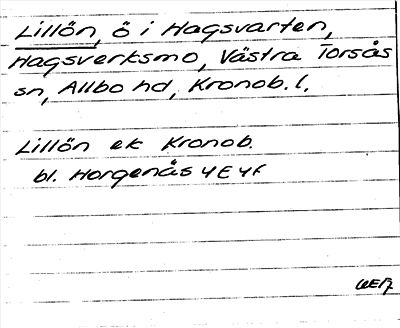 Lillön, ö i Hagsvarten,
Hagsverksmo, Västra Torsås
sn, Allbo hd, Kronob. l.
Lillön ek Kronob.
bl. Horgenås 4E 4f